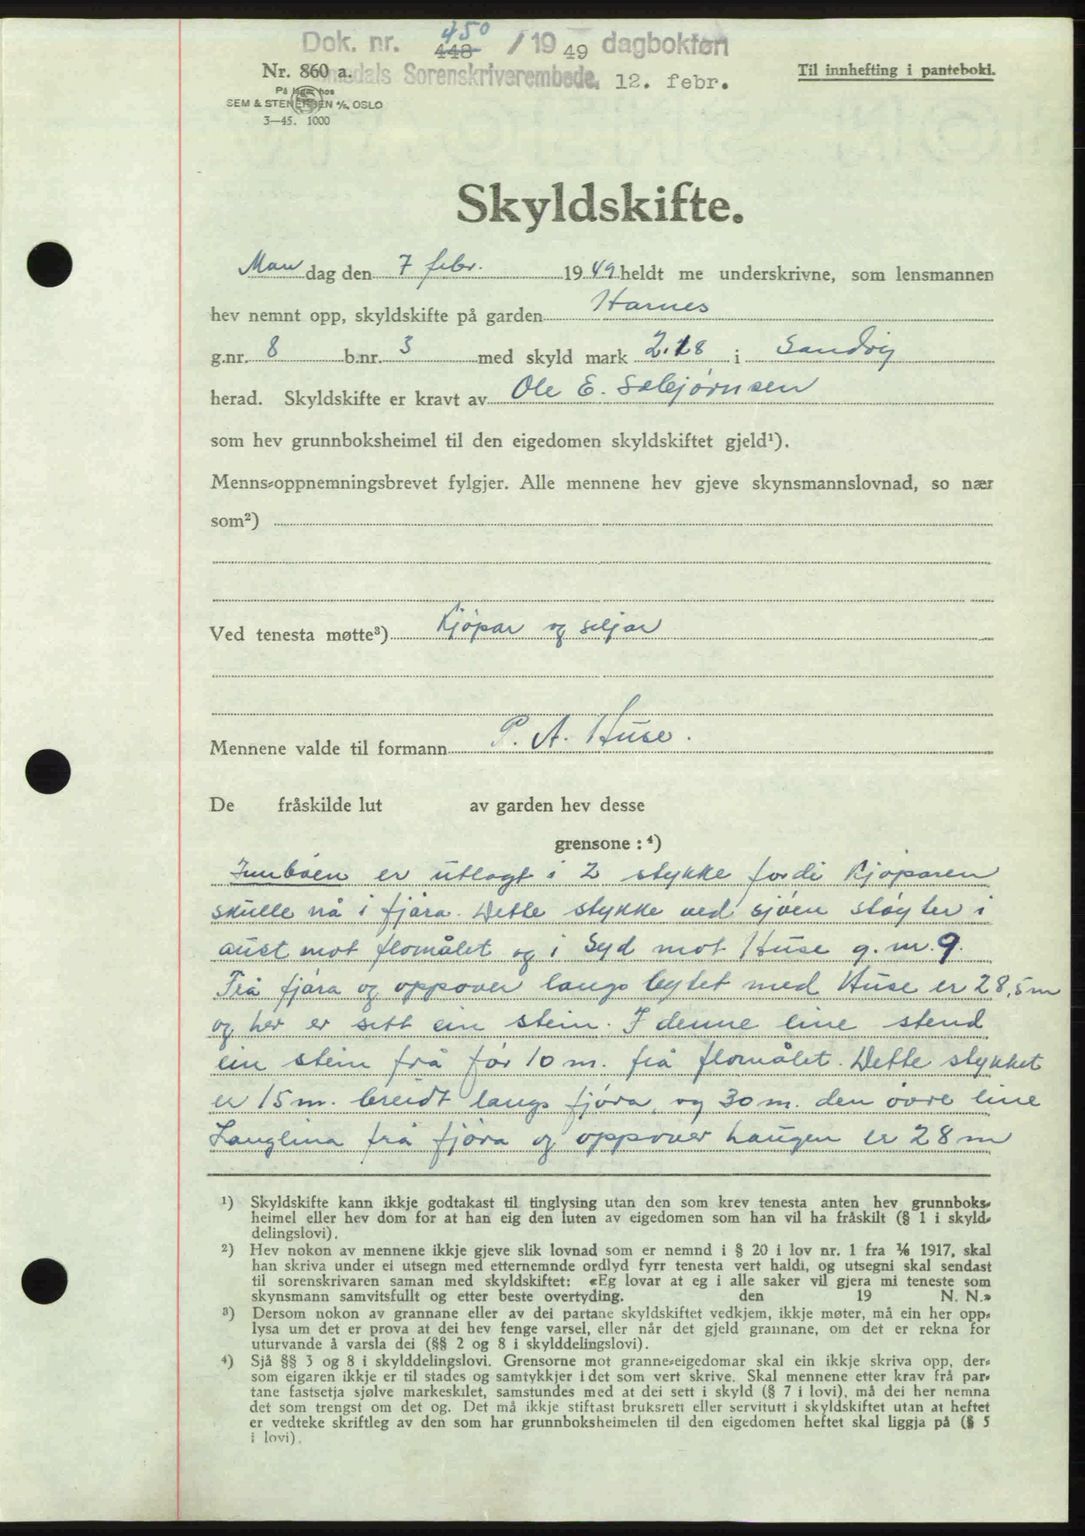 Dok. nr. 448 450 / 19 49 dagboken
Nr. 860 a.
Sorenskriverembede, 12. febr.
Til innhefting i panteboki.
På lager hos
SEM & STENERSEN A/S, OSLO
3—45. 1000
Skyldskifte.
Man dag den 7 febr. 19 49 heldt me underskrivne, som lensmannen
hev nemnt opp, skyldskifte på garden Harnes
g.nr. 8 b.nr. 3 med skyld mark 2.18 i Sandøy
herad. Skyldskifte er kravt av Ole E. Sæbjørnsen
som hev grunnboksheimel til den eigedomen skyldskiftet gjeld¹).
Menns-oppnemningsbrevet fylgjer. Alle mennene hev gjeve skynsmannslovnad, so nær
som²)
Ved tenesta møtte³) Kjöpar og seljar
Mennene valde til formann P. A. Huse.
De fråskilde lut av garden hev desse
grensone : ⁴)
er utlagt i 2 stykke fordi Kjöparen
skulle nå i fjära. Dette stykke ved sjöen støyter i
aust mot flomålet og i Syd mot Huse g. nr. 9.
Frå fjära og oppover langs bytet med Huse er 28,5 m
og her er sett ein stein. I denne line stend
ein stein frå før 10 m. frå flomålet. Dette stykket
er 15 m. breidt langs fjöra, og 30 m. den övre line
Langlina frå fjöra og oppover haugen er 28 m
¹) Skyldskifte kann ikkje godtakast til tinglysing utan den som krev tenesta anten hev grunnboks-
heimel eller hev dom for at han eig den luten av eigedomen som han vil ha fråskilt (§ 1 i skyld-
delingslovi).
²) Hev nokon av mennene ikkje gjeve slik lovnad som er nemnd i § 20 i lov nr. 1 fra 1/6 1917, skal
han skriva under ei utsegn med etternemnde ordlyd fyrr tenesta vert haldi, og utsegni skal sendast
til sorenskrivaren saman med skyldskiftet: «Eg lovar at eg i alle saker vil gjera mi teneste som
skynsmann samvitsfullt og etter beste overtyding. den 19 N. N.»
³) Dersom nokon av grannane eller av dei partane skyldskiftet vedkjem, ikkje møter, må ein her opp-
lysa um det er prova at dei hev fenge varsel, eller når det gjeld grannane, om det er rekna for
uturvande å varsla dei (§§ 2 og 8 i skylddelingslovi).
⁴) Sjå §§ 3 og 8 i skylddelingslovi. Grensorne mot granne-eigedomar skal ein ikkje skriva opp, der-
som eigaren ikkje er til stades og samtykkjer i det som vert skrive. Skal mennene etter krav frå par-
tane fastsetja sjølve markeskilet, samstundes med at dei sett i skyld (§ 7 i lovi), må dei her nemna
det som trengst om det og. Det må ikkje stiftast bruksrett eller servitutt i skyldskiftet utan at heftet
er vedteke skriftleg av den som har grunnboksheimelen til den eigedomen heftet skal liggja på (§ 5
i lovi).